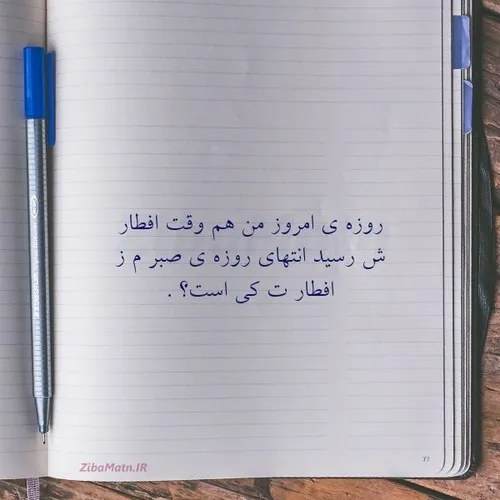 روزه ی امروز من هم وقت افطار
ش رسید انتهای روزه ی صبر م ز
افطار ت کی است؟ .
ZibaMatn.IR